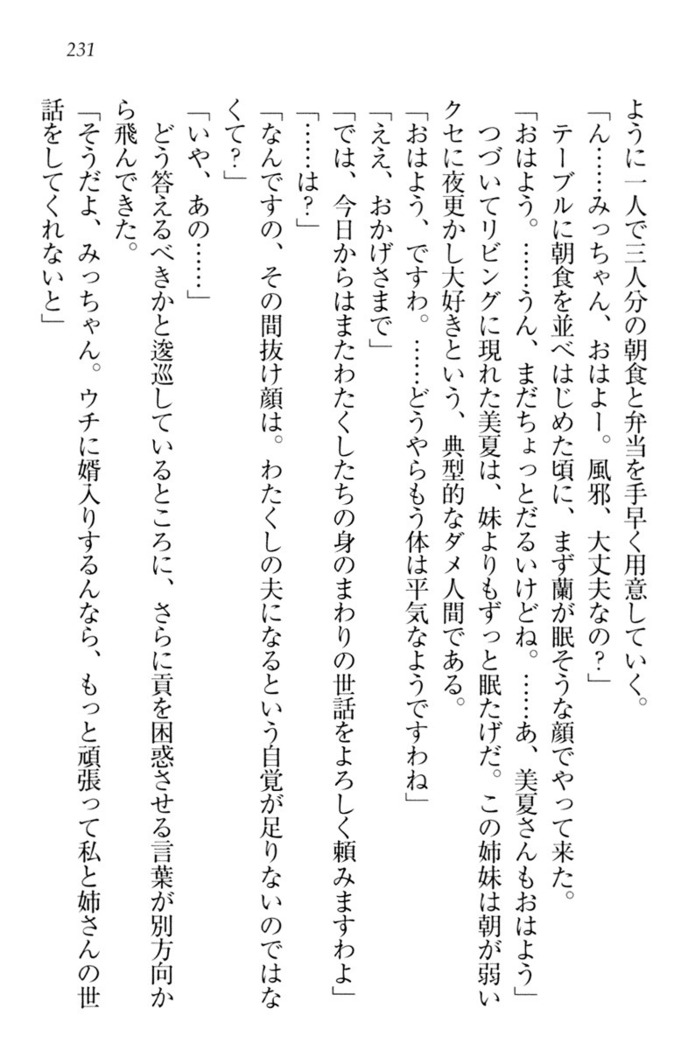 231
ように一人で三人分の朝食と弁当を手早く用意していく。
「ん……みっちゃん、おはよー。風邪、大丈夫なの？」
テーブルに朝食を並べはじめた頃に、まず蘭が眠そうな顔でやって来た。
「おはよう。……うん、まだちょっとだるいけどね。……あ、美夏さんもおはよう」
つづいてリビングに現れた美夏は、妹よりもずっと眠たげだ。この姉妹は朝が弱い
クセに夜更かし大好きという、典型的なダメ人間である。
「おはよう、ですわ。……どうやらもう体は平気なようですわね」
「ええ、おかげさまで」
「では、今日からはまたわたくしたちの身のまわりの世話をよろしく頼みますわよ」
「……は？」
「なんですの、その間抜け顔は。わたくしの夫になるという自覚が足りないのではな
くて？」
「いや、あの……」
どう答えるべきかと逡巡しているところに、さらに貢を困惑させる言葉が別方向か
ら飛んできた。
「そうだよ、みっちゃん。ウチに婿入りするんなら、もっと頑張って私と姉さんの世
話をしてくれないと」